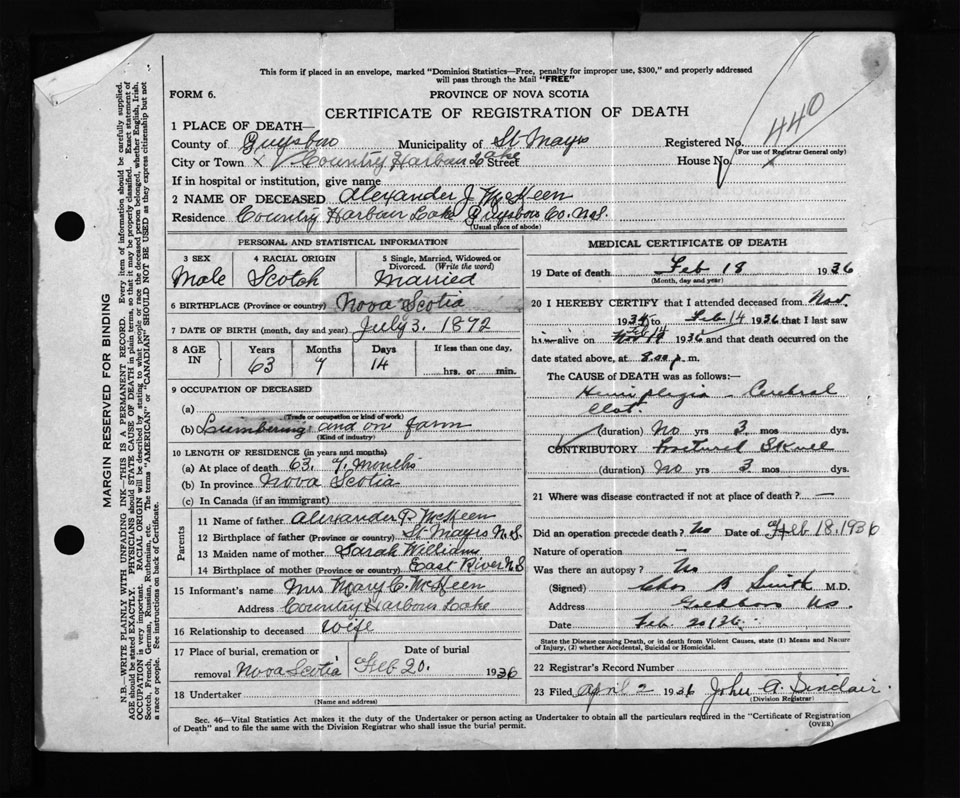 This form if placed in an envelope, marked "Dominion Statistics—Free, penalty for improper use, $300," and properly addressed
will pass through the Mail "FREE"
FORM 6.
PROVINCE OF NOVA SCOTIA
CERTIFICATE OF REGISTRATION OF DEATH
440
1 PLACE OF DEATH—
County of Guysboro Municipality of St Marys Registered No.
(For use of Registrar General only)
City or Town x Country Harbour Lake Street House No.
If in hospital or institution, give name
2 NAME OF DECEASED Alexander J. McKeen
Residence Country Harbour Lake Guysboro Co. N.S.
(Usual place of abode)
PERSONAL AND STATISTICAL INFORMATION
3 SEX 4 RACIAL ORIGIN 5 Single, Married, Widowed or
Divorced. (Write the word)
Male Scotch Married
6 BIRTHPLACE (Province or country) Nova Scotia
7 DATE OF BIRTH (month, day and year) July 3. 1872
8 AGE IN Years Months Days If less than one day,
63 7 14 hrs. or min.
9 OCCUPATION OF DECEASED
(a)
(Trade or occupation or kind of work)
(b) Lumbering and on farm
(Kind of industry)
10 LENGTH OF RESIDENCE (in years and months)
(a) At place of death 63. 7. Months
(b) In province Nova Scotia
(c) In Canada (if an immigrant)
Parents
11 Name of father Alexander P. McKeen
12 Birthplace of father (Province or country) St Marys N.S.
13 Maiden name of mother Sarah Williams
14 Birthplace of mother (Province or country) East River N.S
15 Informant's name Mrs Mary C. McKeen
Address Country Harbour Lake
16 Relationship to deceased Wife
17 Place of burial, cremation or
removal Nova Scotia Date of burial Feb 20. 1936
18 Undertaker
(Name and address)
MEDICAL CERTIFICATE OF DEATH
19 Date of death Feb 18 1936
(Month, day and year)
20 I HEREBY CERTIFY that I attended deceased from Nov.
1935 to Feb 14 1936 that I last saw
him alive on Feb 14 1936 and that death occurred on the
date stated above, at 8.00 p.m.
The CAUSE of DEATH was as follows:—
Hemiplegia – Cerebral
Clot.
(duration) No yrs 3 mos. dys.
CONTRIBUTORY Fractured Skull
(duration) No yrs 3 mos. dys.
21 Where was disease contracted if not at place of death? —
Did an operation precede death? No Date of Feb 18. 1936
Nature of operation —
Was there an autopsy? No
(Signed) Chas B Smith M.D.
Address Goldboro NS.
Date Feb. 20/36.
State the Disease causing Death, or in death from Violent Causes, state (1) Means and Nature
of Injury, (2) whether Accidental, Suicidal or Homicidal.
22 Registrar's Record Number
23 Filed April 2 1936 John A. Sinclair.
(Division Registrar)
Sec. 46—Vital Statistics Act makes it the duty of the Undertaker or person acting as Undertaker to obtain all the particulars required in the "Certificate of Registration
of Death" and to file the same with the Division Registrar who shall issue the burial permit.
(OVER)
MARGIN RESERVED FOR BINDING
N.B.—WRITE PLAINLY WITH UNFADING INK—THIS IS A PERMANENT RECORD. Every item of information should be carefully supplied.
AGE should be stated EXACTLY. PHYSICIANS should STATE CAUSE OF DEATH in plain terms, so that it may be properly classified. Exact statement of
OCCUPATION is very important. RACIAL ORIGIN will be described by stating to what people or race the deceased person belonged, whether English, Irish,
Scotch, French, German, Russian, Ruthenian, etc. The terms "AMERICAN" or "CANADIAN" SHOULD NOT BE USED as they express citizenship but not
a race or people. See instructions on back of Certificate.